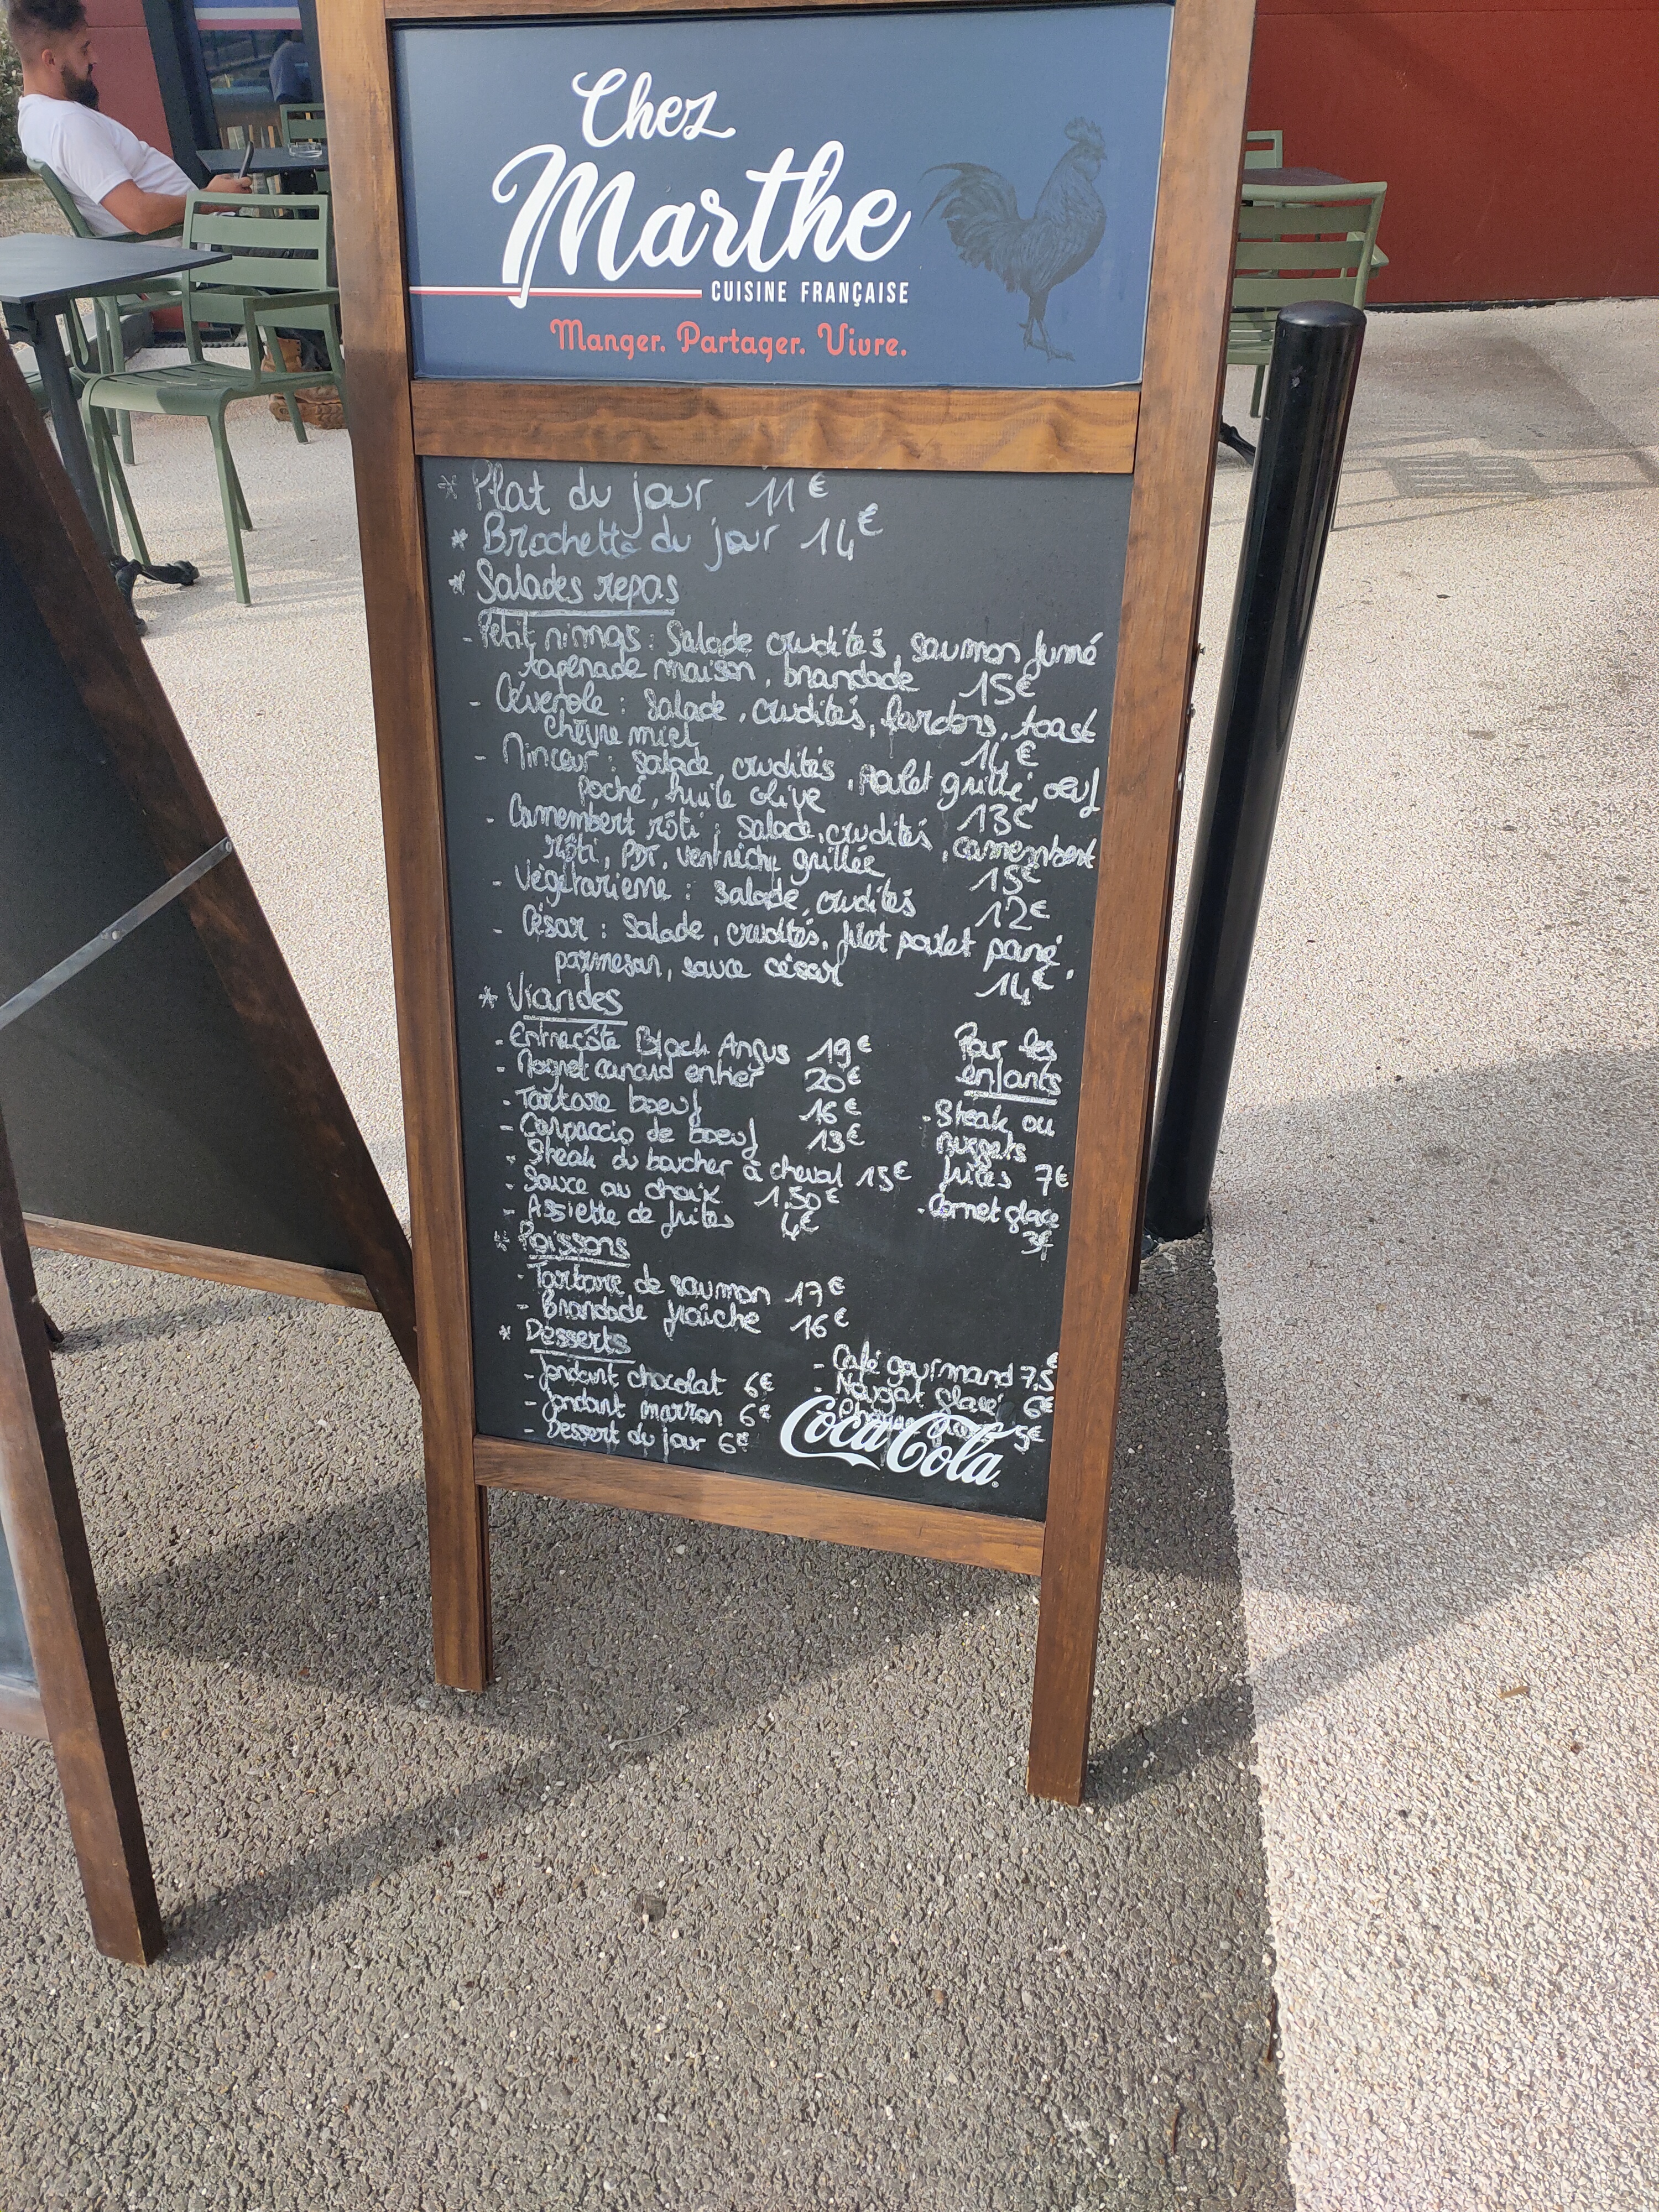 Chez
Marthe
CUISINE FRANÇAISE
Manger. Partager. Vivre.
* Plat du jour 11€
* Brochette du jour 14€
* Salades repas
- Petit nimas : Salade crudités, saumon fumé
tapenade maison, brandade 15€
- Cévenole : Salade, crudités, lardons, toast
chèvre miel 14€
- Minceur : salade, crudités, poulet grillé, oeuf
poché, huile olive 13€
- Camembert rôti : salade, crudités, camembert
rôti, PDT, ventrèche grillée 15€
- végétarienne : salade, crudités 12€
- César : Salade, crudités, filet poulet pané,
parmesan, sauce césar 14€
* Viandes
- Entrecôte Black Angus 19€
- Magret canard entier 20€
- Tartare boeuf 16€
- Carpaccio de boeuf 13€
- Steak du boucher à cheval 15€
- Sauce au choix 1,50€
- Assiette de frites 4€
Pour les
enfants
- Steak ou
nuggets
frites 7€
- Cornet glace
3€
* Poissons
- Tartare de saumon 17€
- Brandade fraîche 16€
* Desserts
- fondant chocolat 6€
- fondant marron 6€
- Dessert du jour 6€
- Café gourmand 7,5€
- Nougat glacé 6€
5€
Coca-Cola